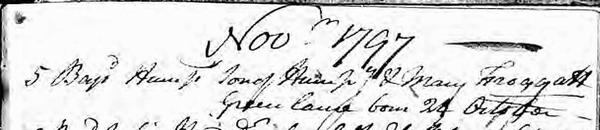 Nov.r 1797
5 Bapd Humpy Son of Humpy & Mary Froggatt
Green lane born 24 October